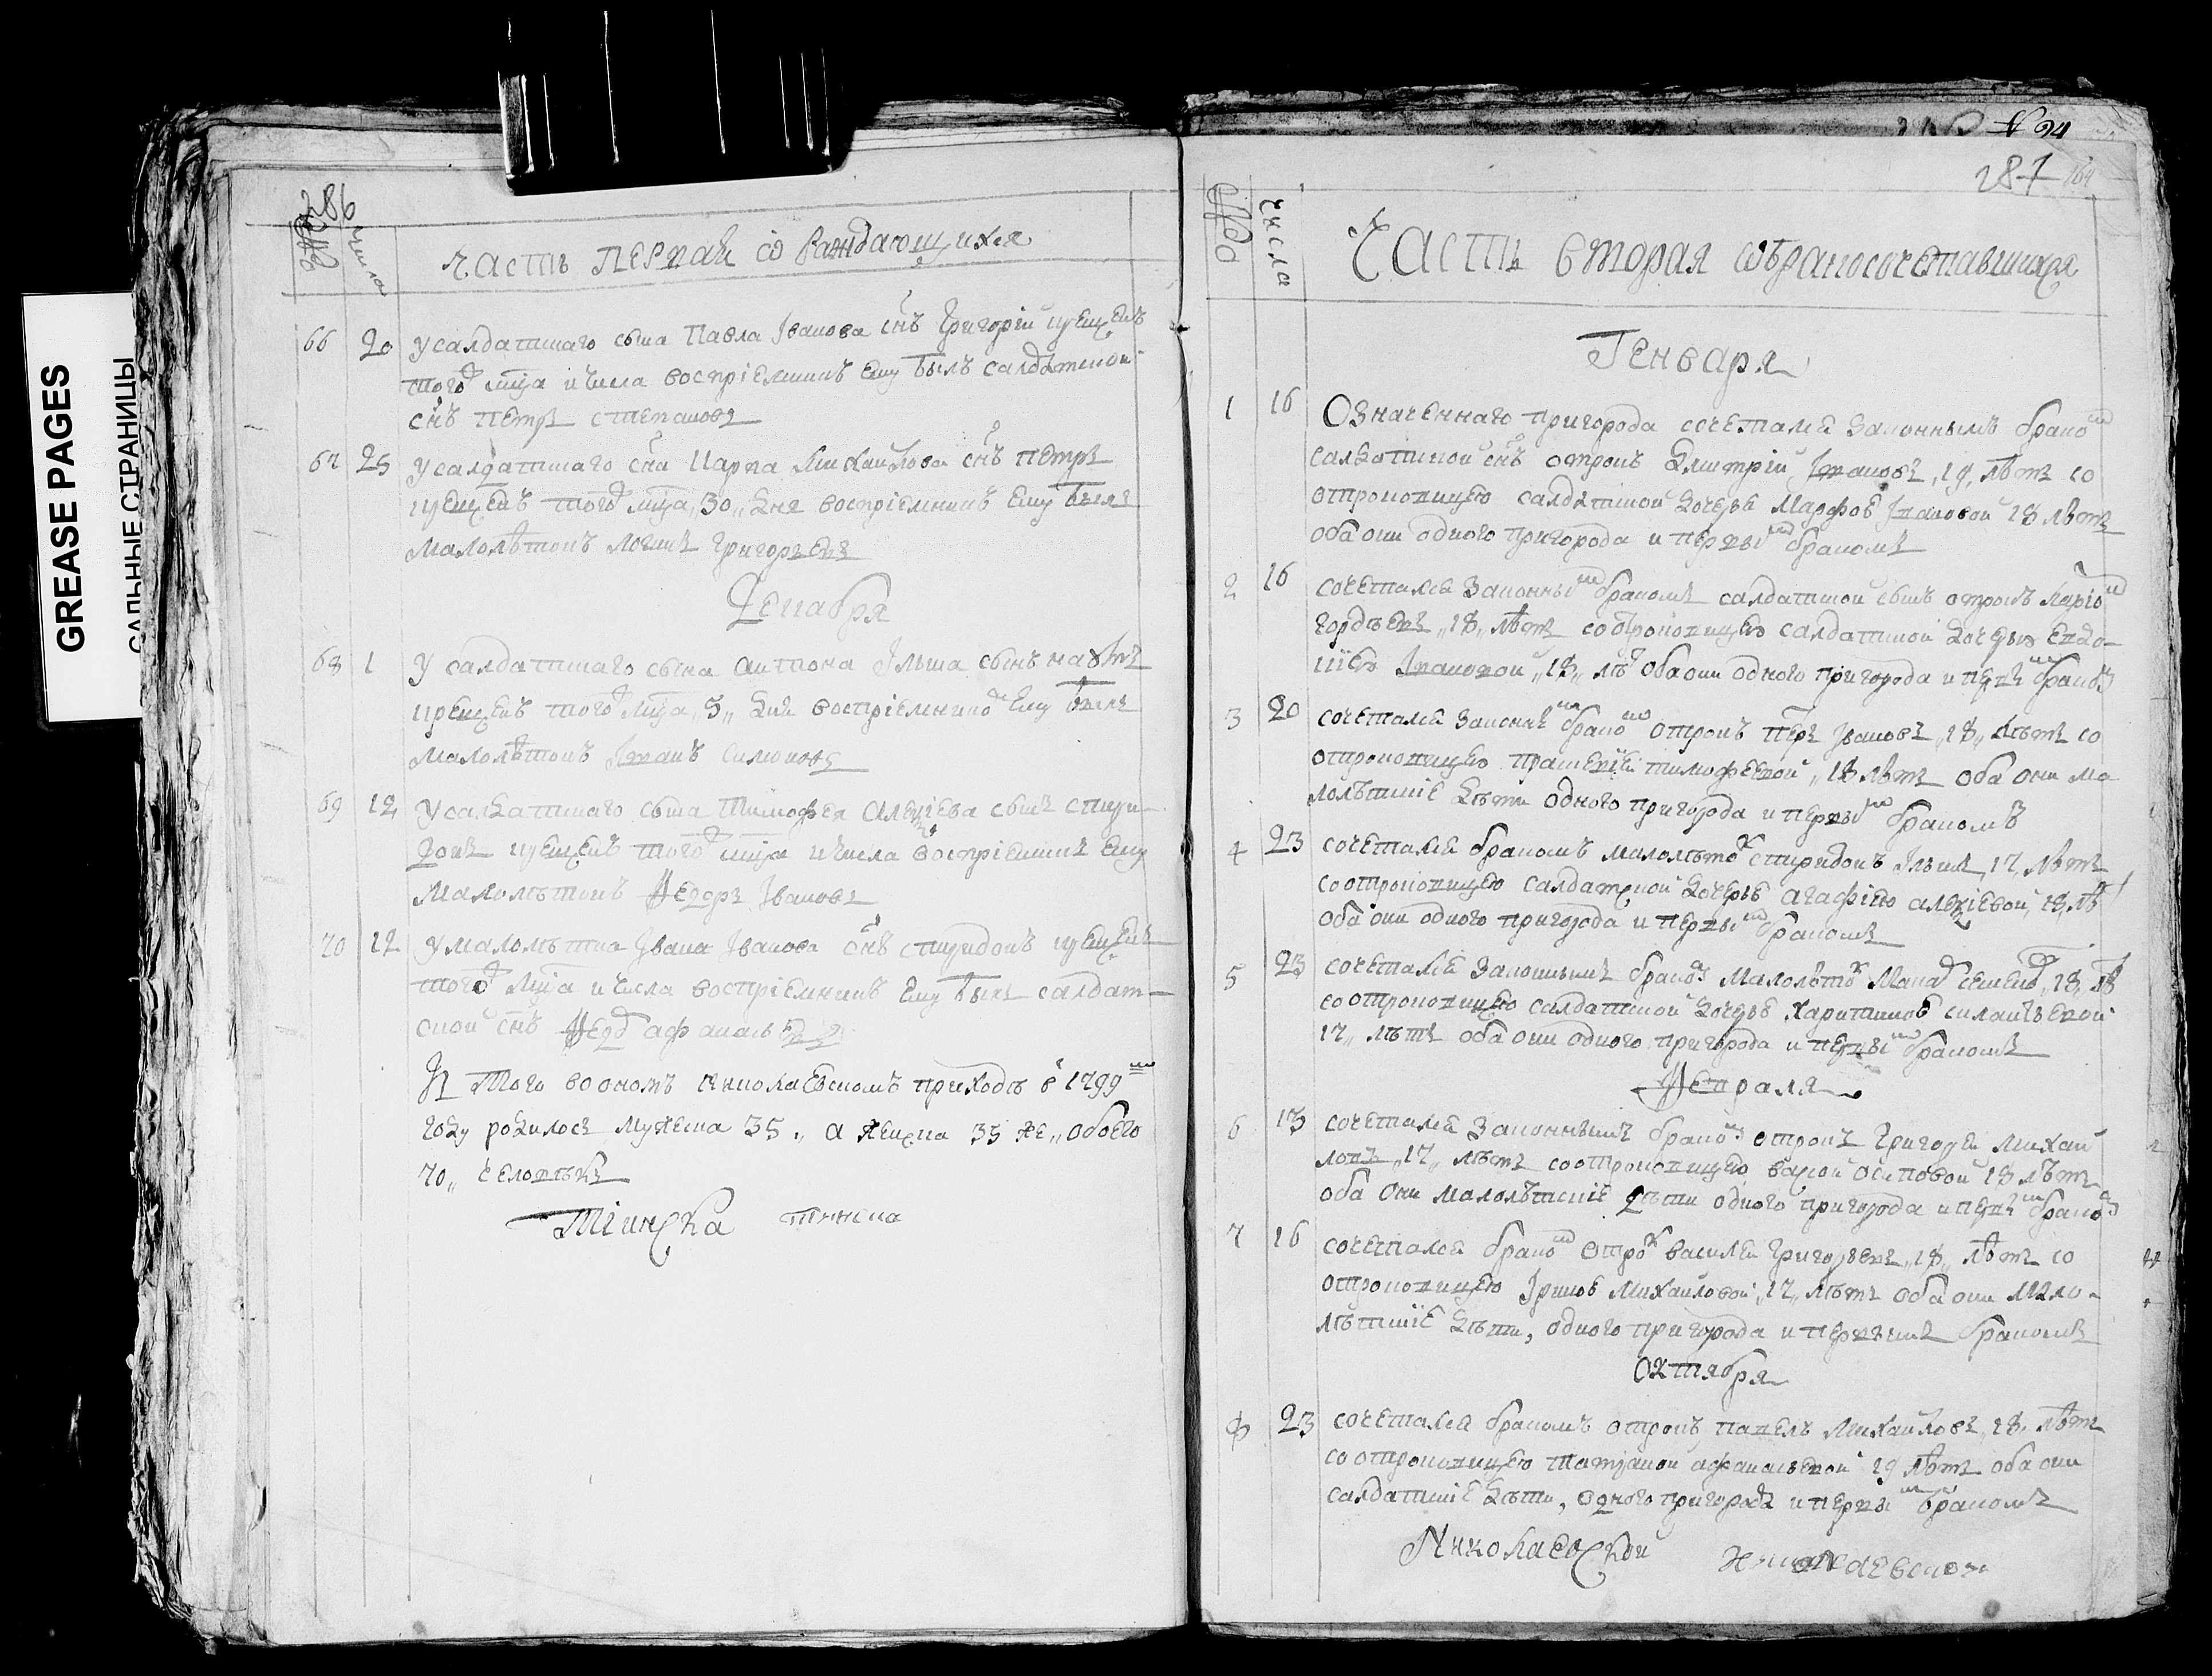 GREASE PAGES
САЛЬНЫЕ СТРАНИЦЫ
286
№
числа
Часть первая ѡ раждающихся
66 20 У салдатскаго сына Павла Іванова снъ Григорій крещенъ
того мца и числа воспріемникъ ему былъ салдатской
снъ Петръ Степановъ
67 25 У салдатскаго сна Карпа Михайлова снъ Петръ
крещенъ того мца, 30, дня воспріемникъ ему былъ
малолѣтокъ Логинъ Григорьевъ
Декабря
68 1 У салдатскаго сына Антона Ільина сынъ Наумъ
крещенъ того мца, 5, дня воспріемнико ему былъ
малолѣтокъ Іванъ Симоновъ
69 12 У салдатскаго сына Тимофея Алексіева сынъ Спири-
донъ крещенъ того мца и числа воспріемникъ ему
малолѣтокъ Ѳедоръ Івановъ
70 12 У малолѣтка Івана Іванова снъ Спиридонъ крещенъ
того мца и числа воспріемникъ ему былъ салдат-
ской снъ Ѳедо Афанасьевъ
И того во ономъ Николаевскомъ приходѣ в 1799 мъ
году родилось мужеска 35, а женска 35 же, обоего
70, человѣкъ
№ 94
287
№
числа
Часть вторая ѡ бракосочетавшихся
Генваря
1 16 Означеннаго пригорода сочетался законнымъ брако мъ
салдатской снъ отрокъ Дмитрій Івановъ, 19, лѣтъ со
отроковицею салдатской дочерью Марфою Івановой 18 лѣтъ
оба они одного пригорода и первы мъ бракомъ
2 16 сочетался законны мъ бракомъ салдатской сынъ отрокъ Ларіо
Гордѣевъ, 18, лѣтъ со отроковицею салдатской дочерью Евдо-
кіею Івановой, 18, лѣ оба они одного пригорода и первы мъ брако
3 20 сочетался законы мъ брако мъ отрокъ Петръ Івановъ, 18, лѣтъ со
отроковицею Тимофеевой, 18 лѣтъ оба они ма
лолѣтскіе дѣти одного пригорода и первы мъ бракомъ
4 23 сочетался бракомъ малолѣто Спиридонъ Ільинъ, 17, лѣтъ
со отроковицею салдатской дочерью Агафіею Алексіевой, 18, лѣ
оба они одного пригорода и первы мъ бракомъ
5 23 сочетался законнымъ брако малолѣто Семено, 18, лѣ
со отроковицею салдатской дочерью Харитиною Силантьевой
17, лѣтъ оба они одного пригорода и первы мъ бракомъ
Ѳевраля
6 13 сочетался законнымъ брако отрокъ Григорей Михай
ловъ, 17, лѣтъ со отроковицею Осиповой 18 лѣтъ
оба они малолѣтскіе дѣти одного пригорода и первы мъ брако
7 16 сочетался брако мъ отро Василей Григорьевъ, 18, лѣтъ со
отроковицею Іриною Михаиловой, 17, лѣтъ оба они мало-
лѣтскіе дѣти, одного пригорода и первымъ бракомъ
Октября
8 23 сочетался бракомъ отрокъ Павелъ Михайловъ, 18, лѣтъ
со отроковицею Татіаной Афанасьевой 19 лѣтъ оба они
салдатскіе дѣти, одного пригорода и первы мъ бракомъ
Николаевской Николаевской